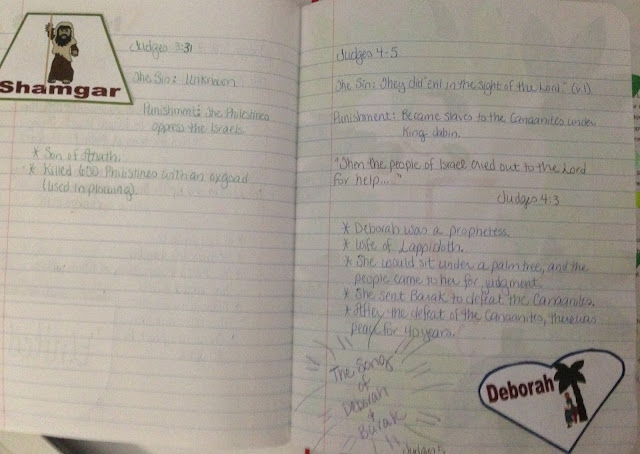 Shamgar
Judges 3:31
The Sin: Unknown
Punishment: The Philistines
oppress the Israels.
* Son of Anath.
* Killed 600 Philistines with an oxgoad
(used in plowing).
Judges 4-5
The Sin: They did "evil in the sight of the Lord" (v.1)
Punishment: Became slaves to the Canaanites under
King Jabin.
"Then the people of Israel cried out to the Lord
for help..."
Judges 4:3
* Deborah was a prophetess.
* Wife of Lappidoth.
* She would sit under a palm tree, and the
people came to her for judgment.
* She sent Barak to defeat the Canaanites.
* After the defeat of the Canaanites, there was
peace for 40 years.
The Song
of
Deborah
&
Barak
Judges 5
Deborah